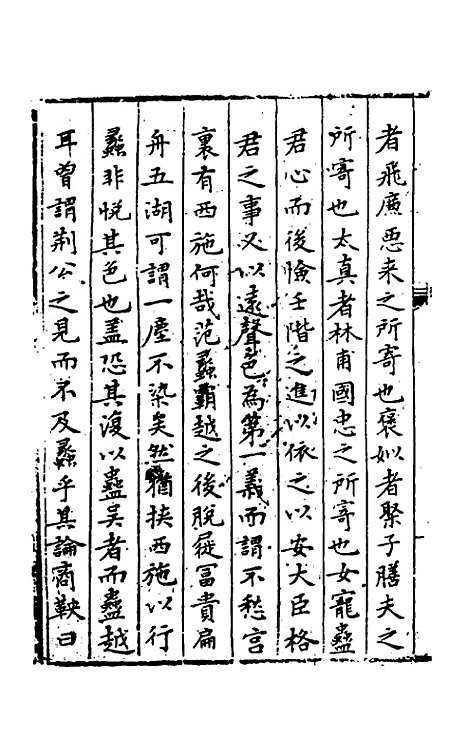 者飛廉惡来之所寄也褒姒者聚子膳夫之
所寄也太真者林甫國忠之所寄也女寵蠱
君心而後憸壬階之進以依之以安大臣格
君之事又以遠聲色為第一義而謂不愁言
裏有西施何哉范蠡霸越之後脫屣冨貴扁
舟五湖可謂一塵不染矣然猶挾西施以行
蠡非悦其色也盖恐其復以蠱吳者而蠱越
耳曾謂荆公之見而不及蠡乎其論商鞅曰